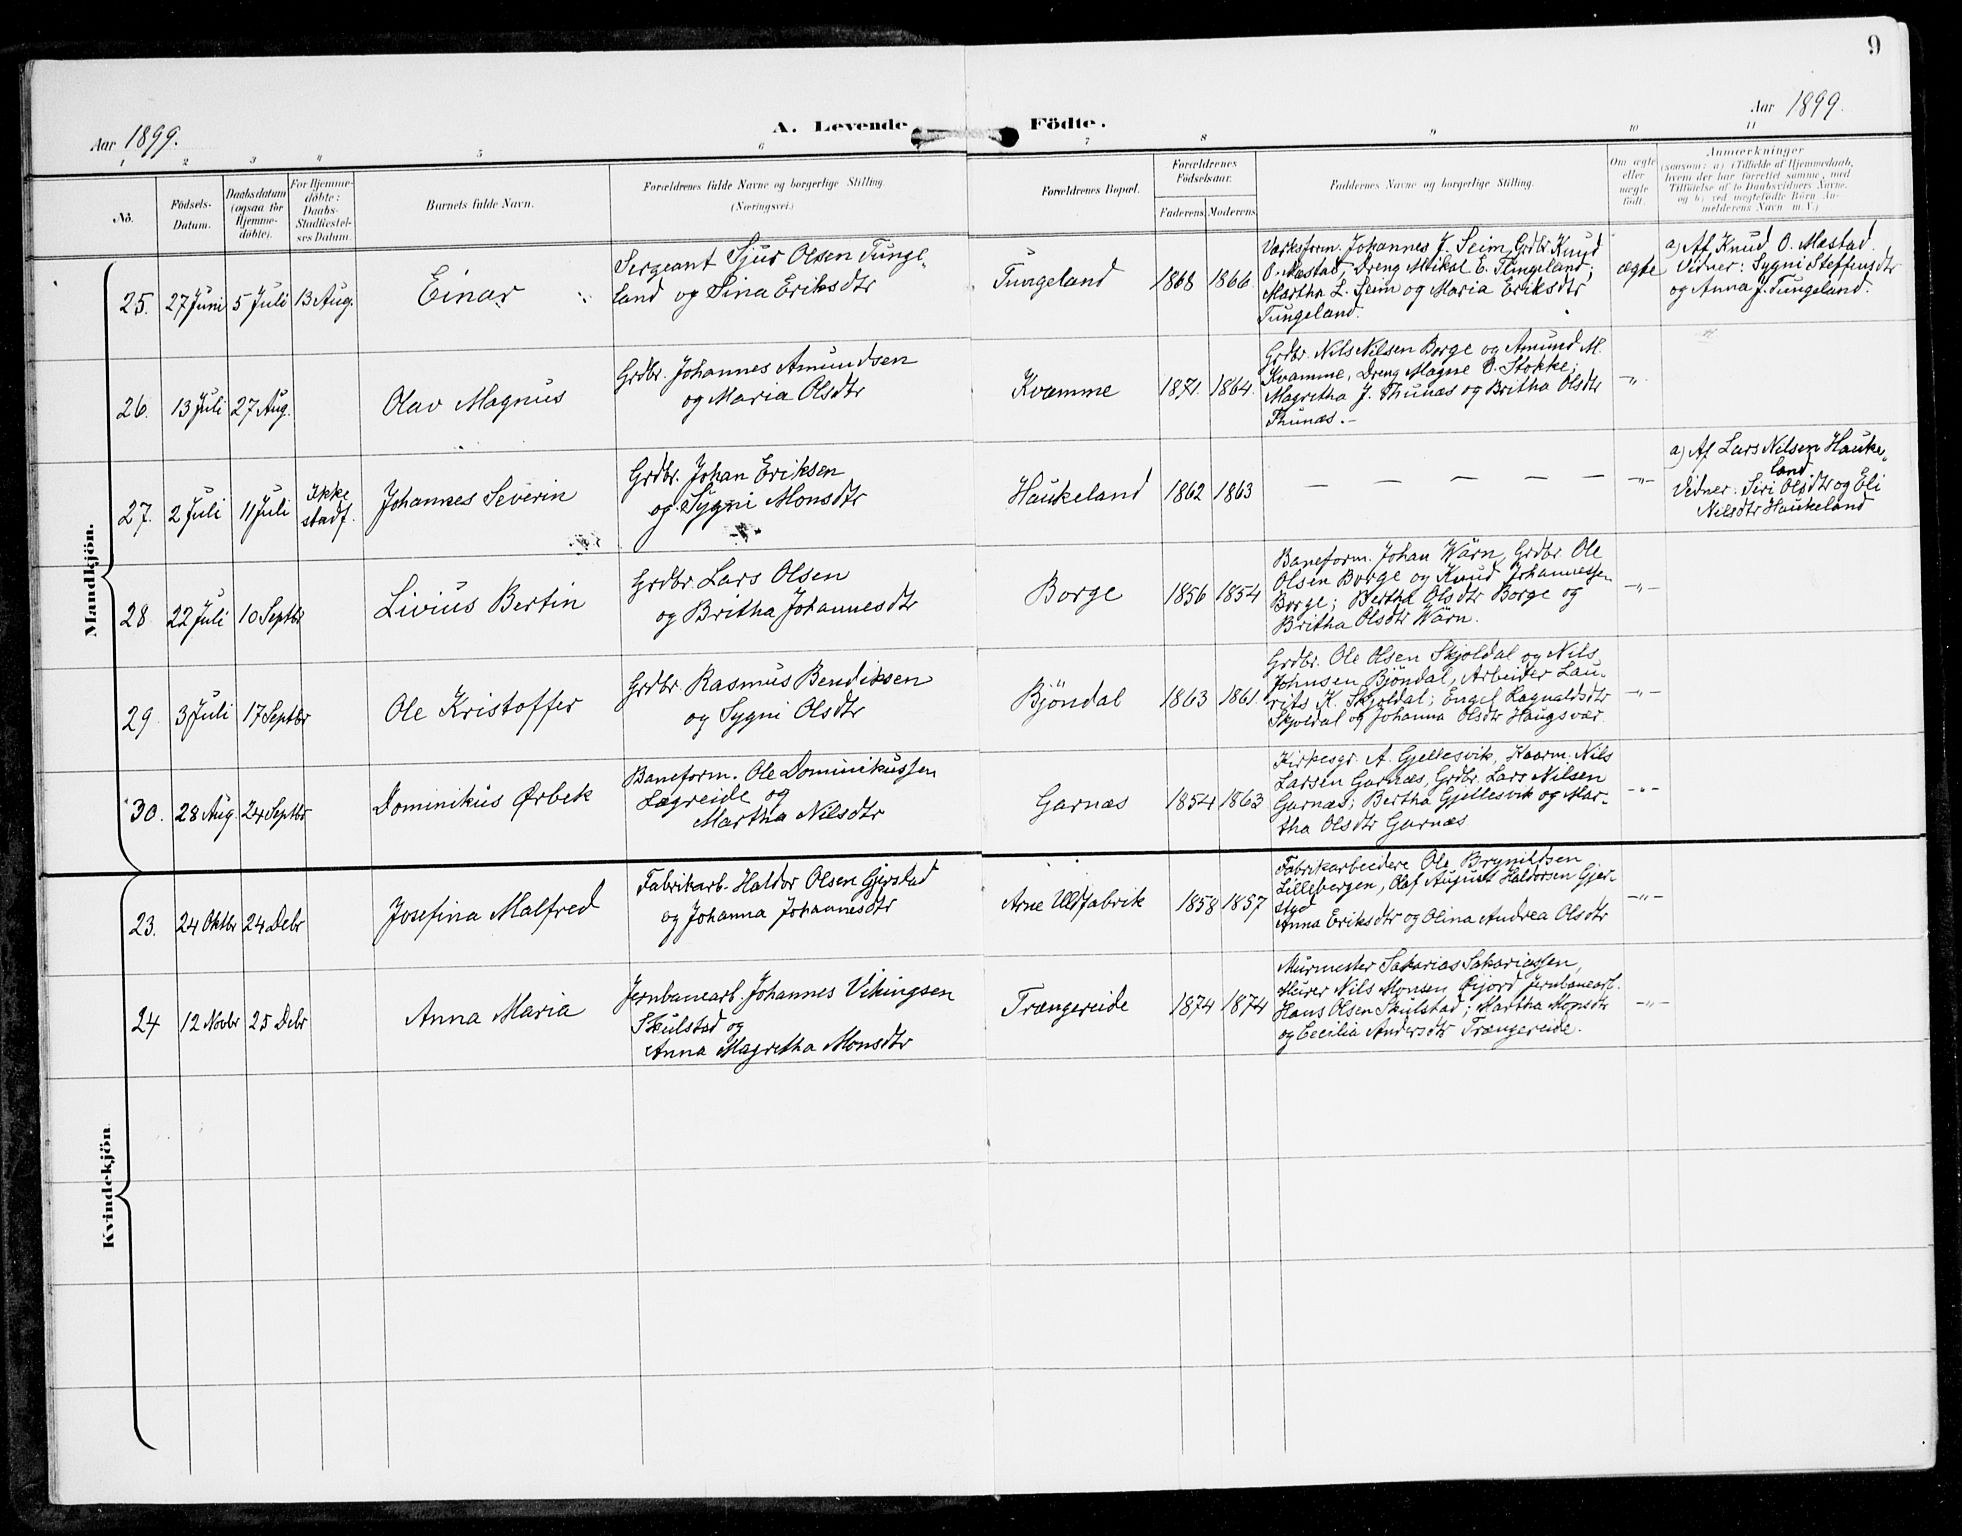 9
Aar 1899.
A. Levende Födte.
Aar 1899.
1 2 3 4 5 6 7 8 9 10 11
Nô.
Födsels-
Datum.
Daabsdatum
(ogsaa for
Hjemme-
döbte).
For Hjemme-
döbte:
Daabs-
Stadfæstel-
ses Datum.
Barnets fulde Navn.
Forældrenes fulde Navne og borgerlige Stilling.
(Næringsvei.)
Forældrenes Bopæl.
Forældrenes
Födselsaar.
Faderens. Moderens.
Faddernes Navne og borgerlige Stilling.
Om ægte
eller
uægte
født.
Anmærkninger
(saasom: a) i Tilfælde af Hjemmedaab,
hvem der har forrettet samme, med
Tilföielse af to Daabsvidners Navne,
og b) ved uægtefödte Börn An-
melderens Navn m. V.)
Mandkjön.
25. 27 Juni 5 Juli 13 Aug.
Einar
Sergeant Sjur Olsen Tunge-
land og Sina Eriksdtr
Tungeland
1868 1866
Værksform. Johannes J. Seim, Grdbr Knud
O. Mæstad, Dreng Mikal E. Tungeland;
Martha L. Seim og Maria Eriksdtr
Tungeland.
ægte
a) Af Knud O. Mæstad.
Vidner: Sygni Steffensdtr
og Anna J. Tungeland.
26. 13 Juli 27 Aug.
Olav Magnus
Grdbr. Johannes Amundsen
og Maria Olsdtr
Kvamme
1871. 1864.
Grdbr. Nils Nilsen Borge og Amund M.
Kvamme, Dreng Magne O. Stokke;
Magretha J. Thunæs og Britha Olsdtr
Thunæs.-
-"-
27. 2 Juli 11 Juli
Ikke
stadf.
Johannes Severin
Grdbr. Johan Eriksen
og Sygni Monsdtr
Haukeland
1862 1863
— — — — —
-"-
a) Af Lars Nilsen Hauke-
land
Vidner: Siri Olsdtr og Eli
Nilsdtr Haukeland
28 22 Juli 10 Septbr
Livius Bertin
Grdbr Lars Olsen
og Britha Johannesdtr
Borge
1856 1854
Baneform. Johan Wärn, Grdbr Ole
Olsen Borge og Knud Johannessen
Borge; Bertha Olsdtr Borge og
Britha Olsdtr Wärn.
-"-
29. 3 Juli 17 Septbr
Ole Kristoffer
Grdbr Rasmus Bendiksen
og Sygni Olsdtr
Bjöndal
1863 1861.
Grdbr. Ole Olsen Skjoldal og Nils
Johnsen Bjöndal, Arbeider Lau-
rits K. Skjoldal; Engel Ragnaldsdtr
Skjoldal og Johanna Olsdtr Haugsvær.
-"-
30. 28 Aug. 24 Septbr
Dominikus Ørbek
Baneform. Ole Dominikussen
Lægreide og
Martha Nilsdtr
Garnæs
1854 1863
Kirkesgr. A. Gjellesvik, Haarm. Nils
Larsen Garnæs, Grdbr. Lars Nilsen
Garnæs; Bertha Gjellesvik og Mar-
tha Olsdtr Garnæs
-"-
Kvindekjön.
23. 24 Oktbr 24 Debr
Josefina Malfred
Fabrikarb. Haldor Olsen Gjerstad
og Johanna Johannesdtr
Arne Uldfabrik
1858 1857
Fabrikarbeidere Ole Brynildsen
Lillebergen, Olaf August Haldorsen Gjer-
stad
Anna Eriksdtr og Olina Andrea Olsdtr
-"-
24 12 Novbr 25 Debr
Anna Maria
Jernbanearb. Johannes Vikingsen
Skulstad og
Anna Magretha Monsdtr
Trængereide
1874 1874
Murmester Sakarias Sakariassen,
Murer Nils Monsen Öijord, Jernbanearb.
Hans Olsen Skulstad; Martha Monsdtr
og Cecilia Andersdtr Trængereide.
-"-